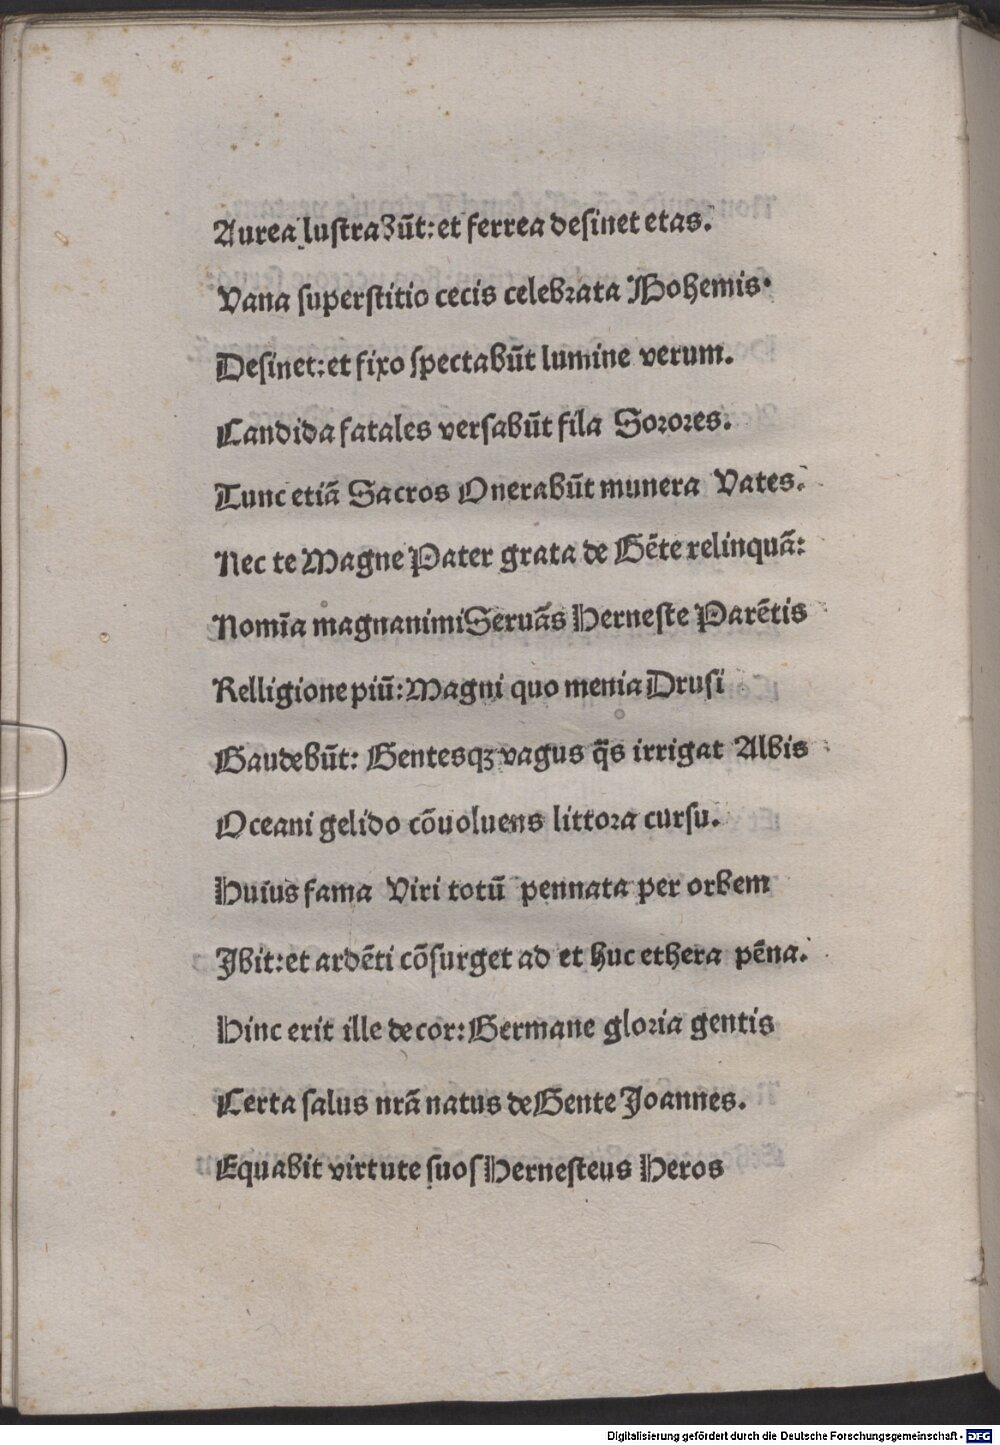 Aurea lustraʒūt: et ferrea desinet etas.
Vana superstitio cecis celebrata Bohemis.
Desinet: et fixo spectabūt lumine verum.
Candida fatales versabūt fila Sorores.
Tunc etiā Sacros Onerabūt munera Vates.
Nec te Magne Pater grata de Gēte relinquā:
Nomīa magnanimi Seruās Herneste Parētis
Relligione piū: Magni quo menia Drusi
Gaudebūt: Gentesqꝫ vagus q̄s irrigat Albis
Oceani gelido cōuoluens littora cursu.
Huius fama Viri totū pennata per orbem
Ibit: et ardēti cōsurget ad et huc ethera pēna.
Hinc erit ille decor: Germane gloria gentis
Certa salus nrā natus de Gente Joannes.
Equabit virtute suos Hernesteus Heros
Digitalisierung gefördert durch die Deutsche Forschungsgemeinschaft - DFG